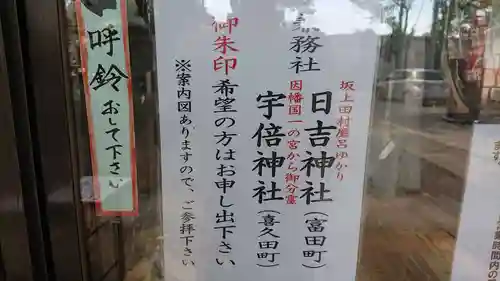 呼鈴おして下さい
務社
坂上田村麿呂ゆかり
日吉神社（富田町）
因幡国一の宮から御分霊
宇倍神社（喜久田町）
御朱印希望の方はお申し出下さい
※案内図ありますので、ご参拝下さい